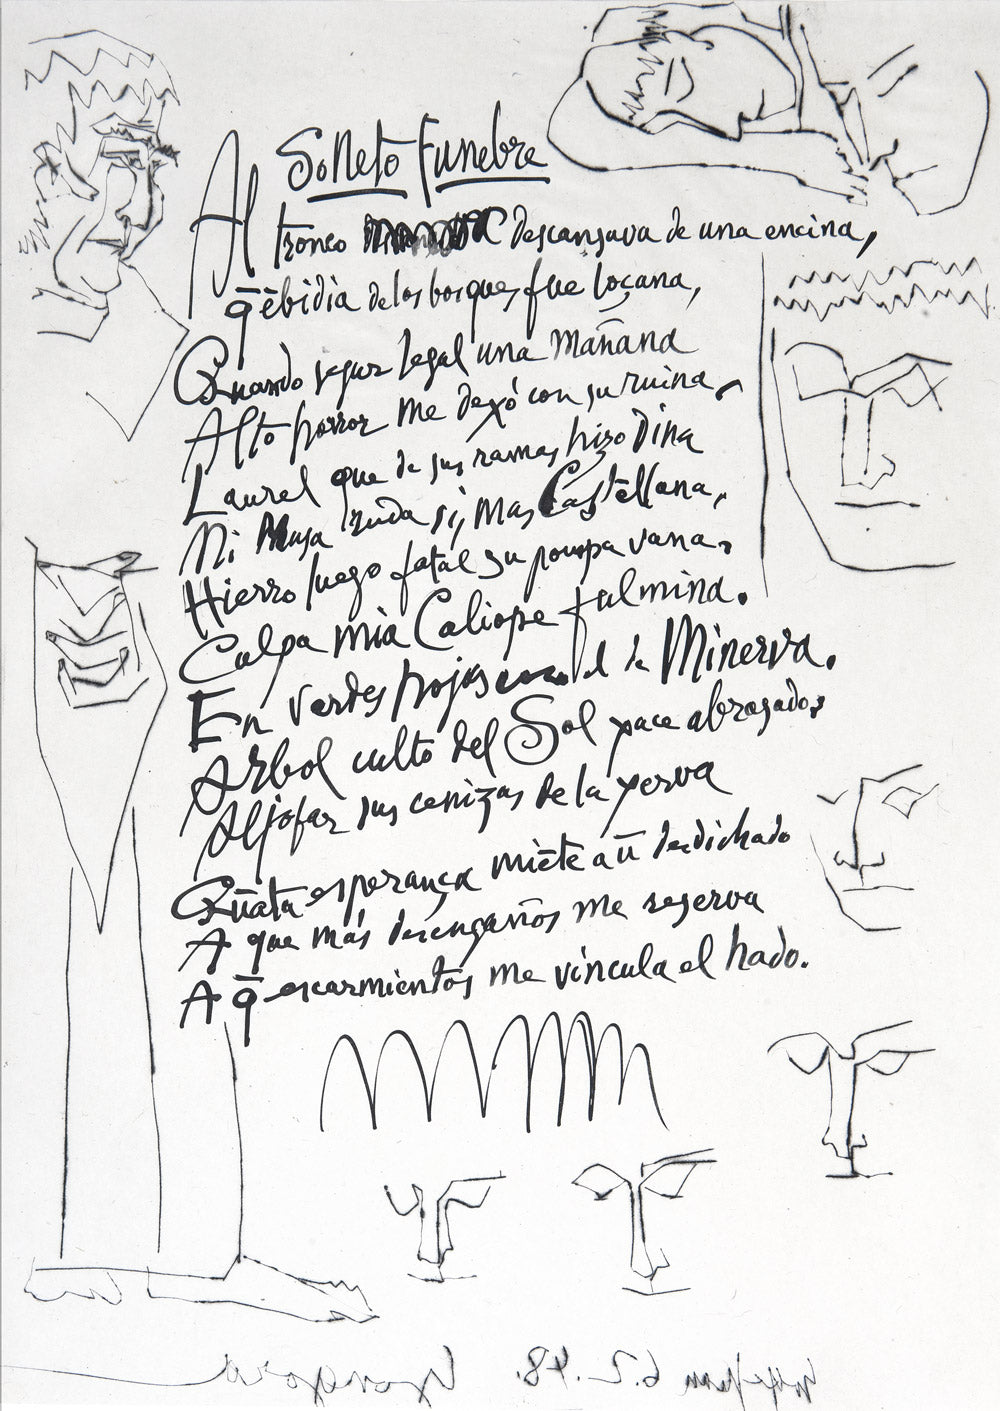 Soneto funebre
Al tronco descansava de una encina,
q̄ ēbidia de los bosques fue loçana,
Quando segur legal una mañana
Alto horror me dexó con su ruina.
Laurel que de sus ramas hizo dina
Mi Musa ruda sí, mas Castellana,
Hierro luego fatal su pompa vana,
Culpa mia Caliope fulmina.
En verdes hojas el de Minerva.
Arbol culto del Sol yace abrasado,
Aljofar sus cenizas de la yerva
Quāta esperança miēte a ū desdichado
A que más desengaños me reserva
A q̄ escarmientos me vincula el hado.
Gongora 6.2.48.